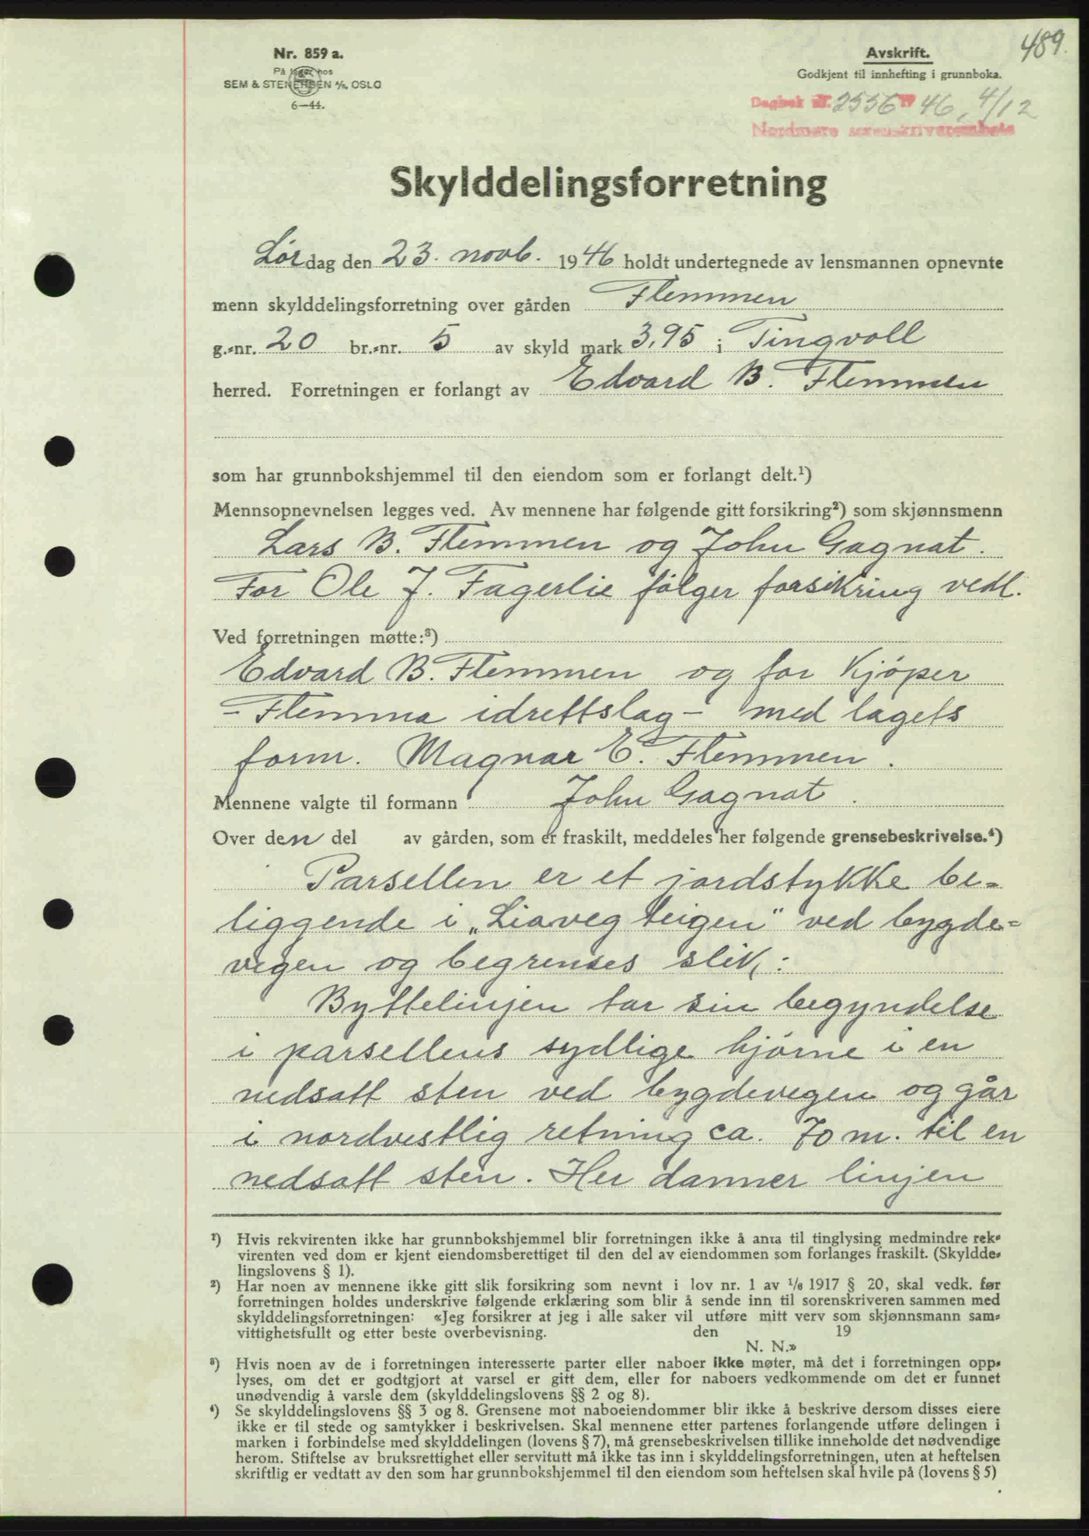 489.
Nr. 859 a.
På lager hos
SEM & STENERSEN A/S, OSLO
6—44.
Avskrift.
Godkjent til innhefting i grunnboka.
Dagbok nr. 2556 19 46, 4/12
Nordmøre sorenskriverembete
Skylddelingsforretning
Lørdag den 23. novb. 1946 holdt undertegnede av lensmannen opnevnte
menn skylddelingsforretning over gården Flemmen
g.-nr. 20 br.-nr. 5 av skyld mark 3,95 i Tingvoll
herred. Forretningen er forlangt av Edvard B. Flemmen
som har grunnbokshjemmel til den eiendom som er forlangt delt.¹)
Mennsopnevnelsen legges ved. Av mennene har følgende gitt forsikring²) som skjønnsmenn
Lars B. Flemmen og John Gagnat.
For Ole J. Fagerlie følger forsikring vedl.
Ved forretningen møtte:³)
Edvard B. Flemmen og for Kjøper
- Flemma idrettslag - med lagets
form. Magnar E. Flemmen.
Mennene valgte til formann John Gagnat.
Over den del av gården, som er fraskilt, meddeles her følgende grensebeskrivelse.⁴)
Parsellen er et jordstykke be-
liggende i „Liaveg teigen" ved bygde-
vegen og begrenses slik:
Byttelinjen tar sin begyndelse
i parsellens sydlige hjørne i en
nedsatt sten ved bygdevegen og går
i nordvestlig retning ca. 70 m. til en
nedsatt sten. Her danner linjen
¹) Hvis rekvirenten ikke har grunnbokshjemmel blir forretningen ikke å anta til tinglysing medmindre rek-
virenten ved dom er kjent eiendomsberettiget til den del av eiendommen som forlanges fraskilt. (Skyldde-
lingslovens § 1).
²) Har noen av mennene ikke gitt slik forsikring som nevnt i lov nr. 1 av 1/6 1917 § 20, skal vedk. før
forretningen holdes underskrive følgende erklæring som blir å sende inn til sorenskriveren sammen med
skylddelingsforretningen: «Jeg forsikrer at jeg i alle saker vil utføre mitt verv som skjønnsmann sam-
vittighetsfullt og etter beste overbevisning. den 19
N. N.»
³) Hvis noen av de i forretningen interesserte parter eller naboer ikke møter, må det i forretningen opp-
lyses, om det er godtgjort at varsel er gitt dem, eller for naboers vedkommende om det er funnet
unødvendig å varsle dem (skylddelingslovens §§ 2 og 8).
⁴) Se skylddelingslovens §§ 3 og 8. Grensene mot naboeiendommer blir ikke å beskrive dersom disses eiere
ikke er til stede og samtykker i beskrivelsen. Skal mennene etter partenes forlangende utføre delingen i
marken i forbindelse med skylddelingen (lovens § 7), må grensebeskrivelsen tillike inneholde det nødvendige
herom. Stiftelse av bruksrettighet eller servitutt må ikke tas inn i skylddelingsforretningen, uten at heftelsen
skriftlig er vedtatt av den som har grunnbokshjemmel til den eiendom som heftelsen skal hvile på (lovens § 5)